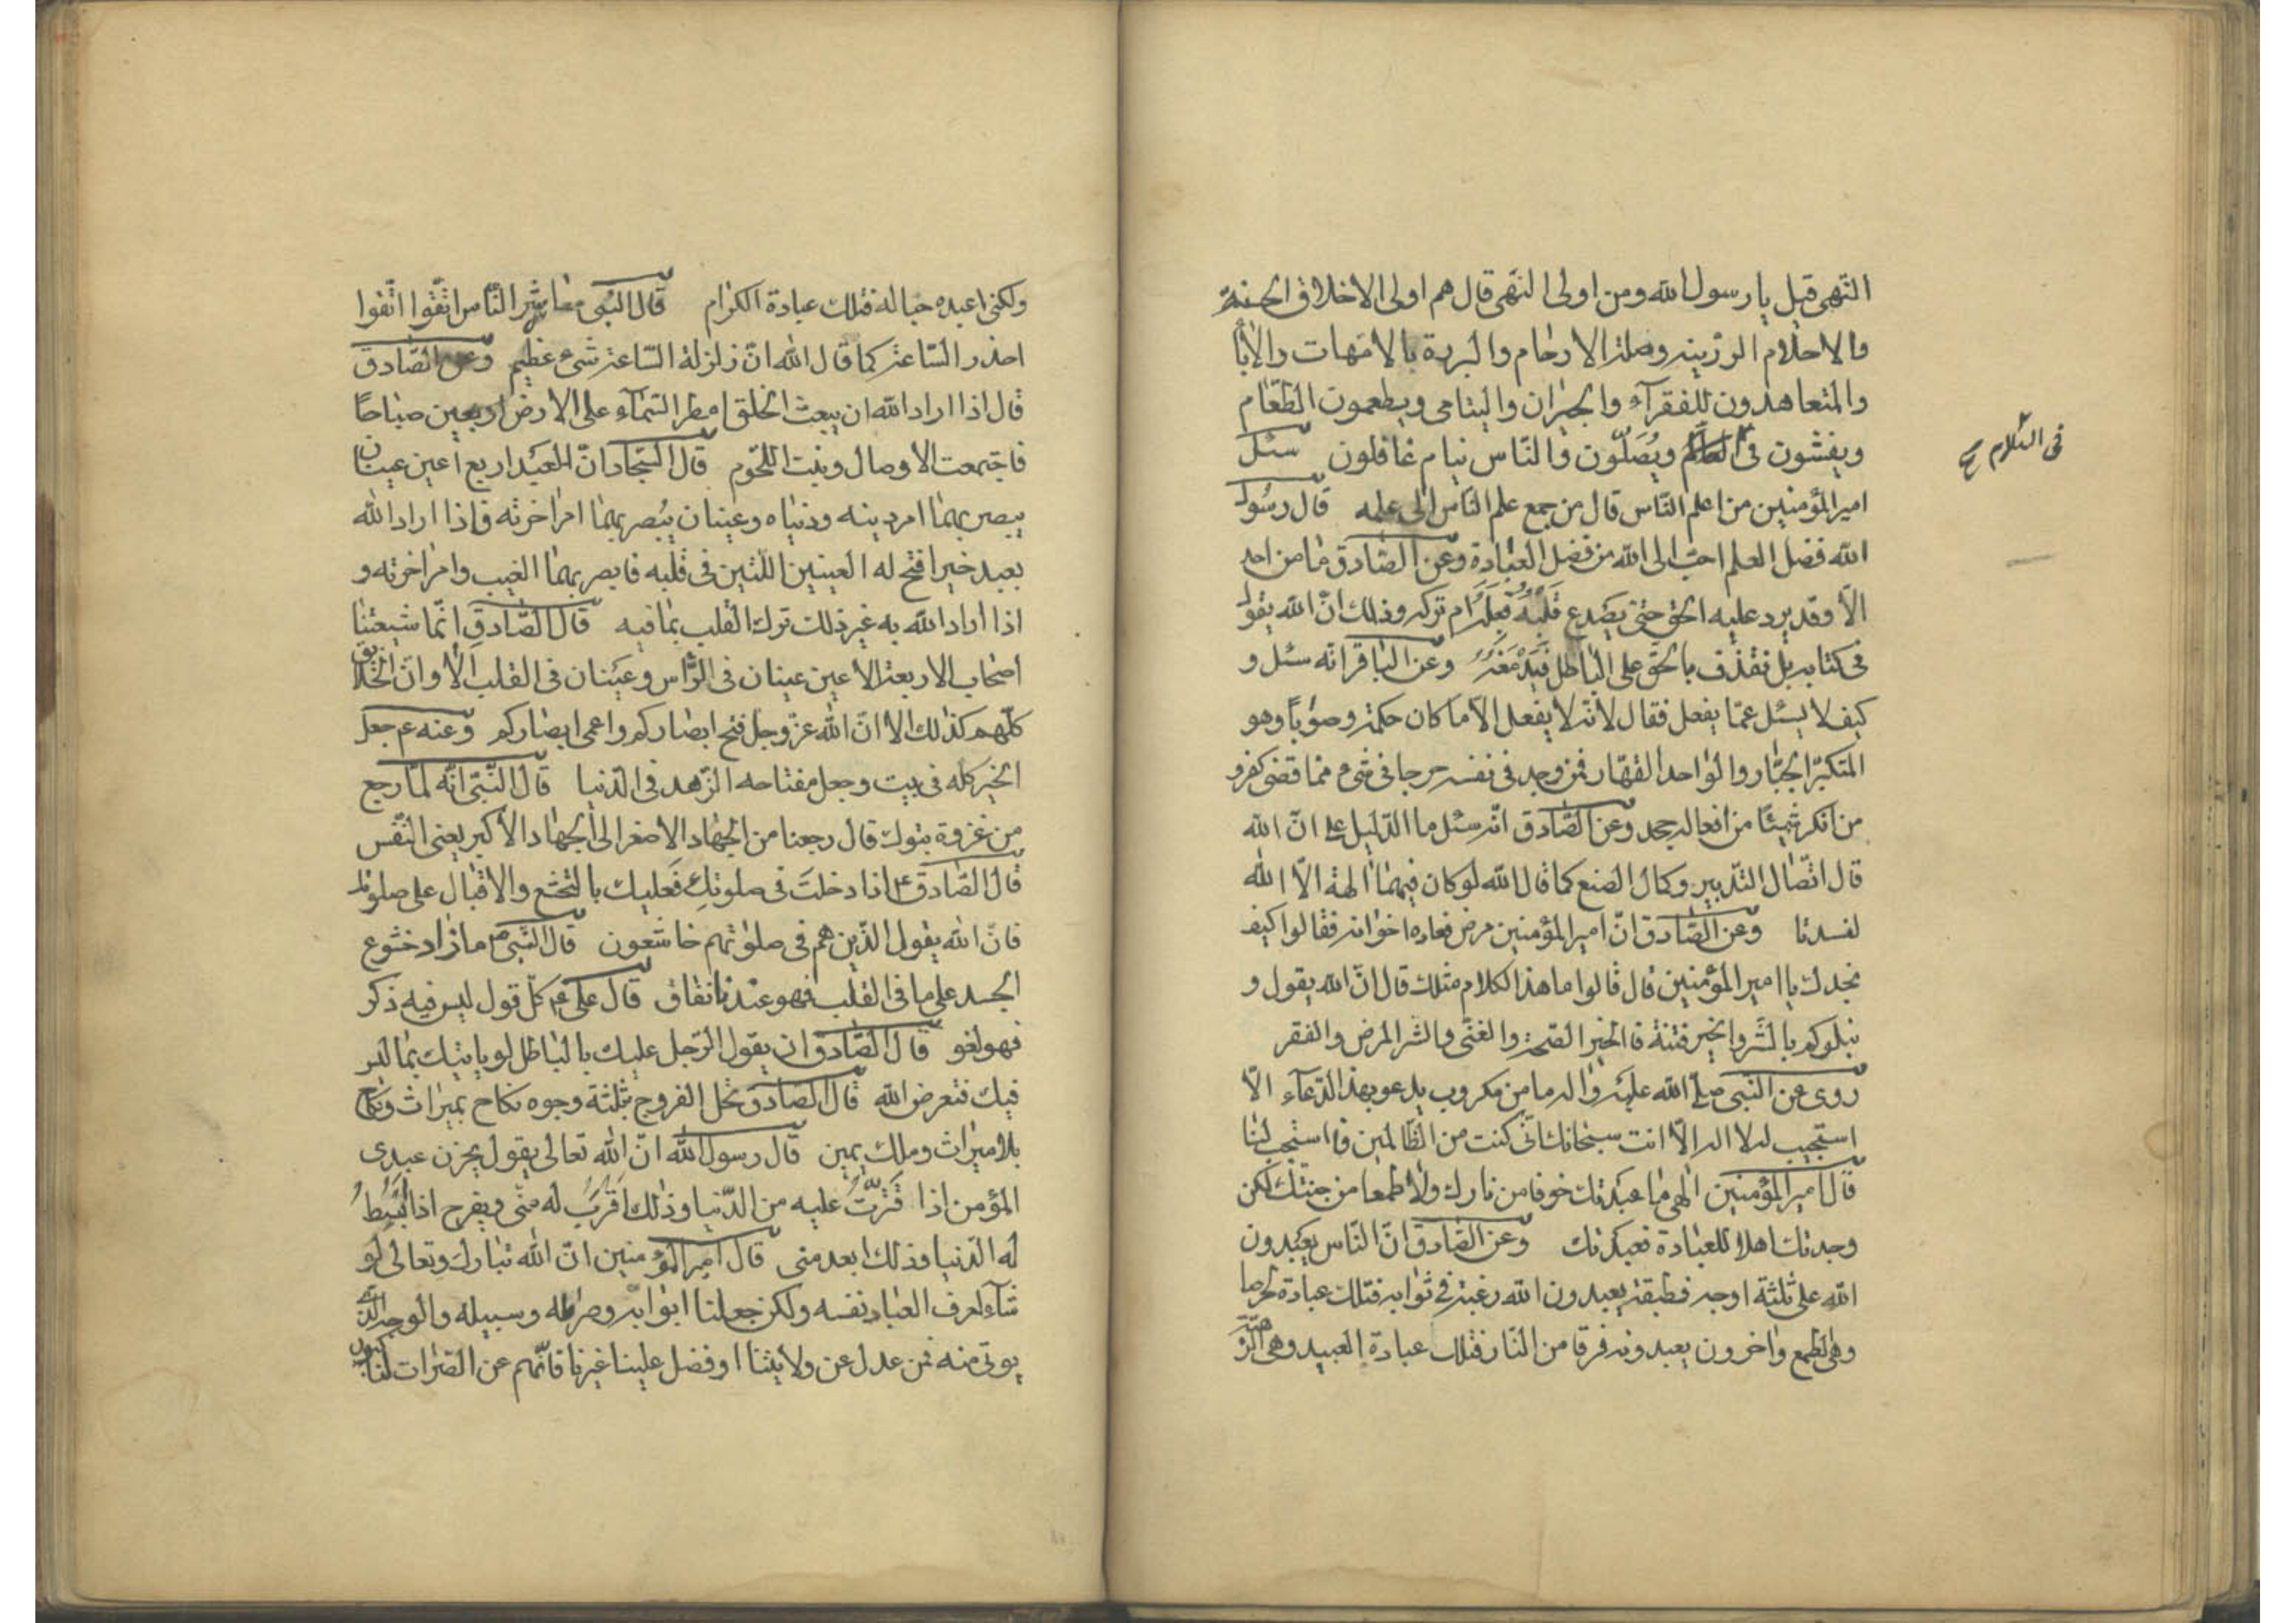 النّهى قيل يا رسول الله ومن اولى النّهى قال هم اولى الاخلاق الحسنة
والاحلام الرزينه وصلة الارحام والبررة بالامّهات والاٰباء
والمتعاهدون للفقرآء والجيران واليتامى ويطعمون الطّعام
ويفشون فى ويُصَلّون والنّاس نيام غافلون سئل
فى السّلام
امير المؤمنين من اعلم النّاس قال من جمع علم النّاس الى علمه قال رسول
الله فضل العلم احبّ الى الله من فضل العبادة وعن الصّادق ما من احد
الّا وقد يرد عليه الحق حتى يصدع قلبه قبله ام تركه وذلك انّ الله يقول
فى كتابه بل نقذف بالحقّ على الباطل فيدمغه وعن الباقر انّه سئل و
كيف لا يسئل عمّا يفعل فقال لانّه لا يفعل الّا ما كان حكمة وصواباً وهو
المتكبّر الجبّار والواحد القهّار فمن وجد فى نفسه حرجا فى شىء ممّا قضى كفر و
من انكر شيئًا من افعاله جحد وعن الصّادق انّه سئل ما الدّليل على انّ الله
قال اتّصال التّدبير وكمال الصنع كما قال الله لو كان فيهما اٰلهة الّا الله
لفسدتا وعن الصّادق انّ امير المؤمنين مرض فعاده اخوانه فقالوا كيف
نجدك يا امير المؤمنين قال قالوا ما هذا الكلام مثلك قال انّ الله يقول و
نبلوكم بالشّر والخير فتنة فالخير الصّحة والغنى والشر المرض والفقر
روى عن النّبى صلّى الله عليه واٰله ما من مكروب يدعو بهذا الدّعآء الّا
استجيب له لا اله الّا انت سبحانك انّى كنت من الظّالمين فاستجب لنا
قال امير المؤمنين الٰهى ما عبدتك خوفا من نارك ولا طمعا من جنّتك لكن
وجدتك اهلا للعبادة فعبدتك وعن الصّادق انّ النّاس يعبدون
الله على ثلثة اوجه فطبقة يعبدون الله رغبة فى ثوابه فتلك عبادة الحرصا
وهى الطمع واٰخرون يعبدونه فرقا من النّار فتلك عبادة العبيد وهى الرّهبة
ولكنى اعبده حبا له فتلك عبادة الكرام قال النّبى معاشر النّاس اتّقوا اتّقوا
احذر السّاعة كما قال الله انّ زلزلة السّاعة شىء عظيم وعن الصّادق
قال اذا اراد الله ان يبعث الخلق امطر السّمآء على الارض اربعين صباحًا
فاجتمعت الاوصال ونبت اللّحوم قال السّجاد انّ للعبد اربع اعين عينان
يبصر بهما امر دينه ودنياه وعينان يبصر بهما امر اٰخرته فاذا اراد الله
بعبد خيرا فتح له العينين اللّتين فى قلبه فابصر بهما الغيب وامر اٰخرته و
اذا اراد الله به غير ذلك ترك القلب بما فيه قال الصّادق انّما شيعتنا
اصحاب الاربعة الاعين عينان فى الرّأس وعينان فى القلب الا وانّ الخلايق
كلّهم كذلك الا انّ الله عزّ وجل فتح ابصاركم واعمى ابصاركم وعنه ع جعل
الخير كله فى بيت وجعل مفتاحه الزّهد فى الدّنيا قال النّبى انّه لمّا رجع
من غزوة تبوك قال رجعنا من الجهاد الاصغر الى الجهاد الأكبر يعنى النّفس
قال الصّادق ع اذا دخلتَ فى صلوتك فعليك بالتخشّع والاقبال على صلوتك
فانّ الله يقول الّذين هم فى صلوتهم خاشعون قال النّبى ص ما زاد خشوع
الجسد على ما فى القلب فهو عندنا نفاق قال على ع كلّ قول ليس فيه ذكر
فهو لغو قال الصّادق ان يقول الرّجل عليك بالباطل لو ياتيك بما ليس
فيك فتعرض الله قال الصّادق تحل الفروج بثلثة وجوه نكاح بميراث ونكاح
بلا ميراث وملك يمين قال رسول الله انّ الله تعالى يقول يحزن عبدى
المؤمن اذا قترّتُ عليه من الدّنيا وذلك اقرب له منّى ويفرح اذا بسطُ
له الدّنيا وذلك ابعد منى قال امير المؤمنين انّ الله تبارك وتعالى لو
شآء لعرف العباد نفسه ولكن جعلنا ابوابه وصراطه وسبيله والوجه الّذى
يوتى منه فمن عدل عن ولايتنا او فضل علينا غيرنا فانّهم عن الصّراط لناكبون